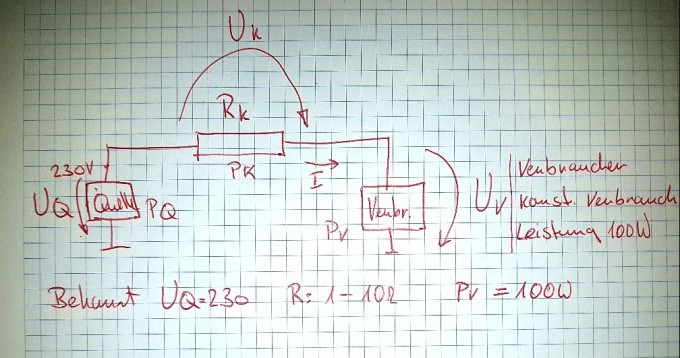 UK
RK
230V
PK
I
UQ
Quelle
PQ
PV
Verbr.
UV
Verbraucher
konst. Verbrauch
Leistung 100W
Bekannt UQ=230 R: 1-10Ω PV = 100W